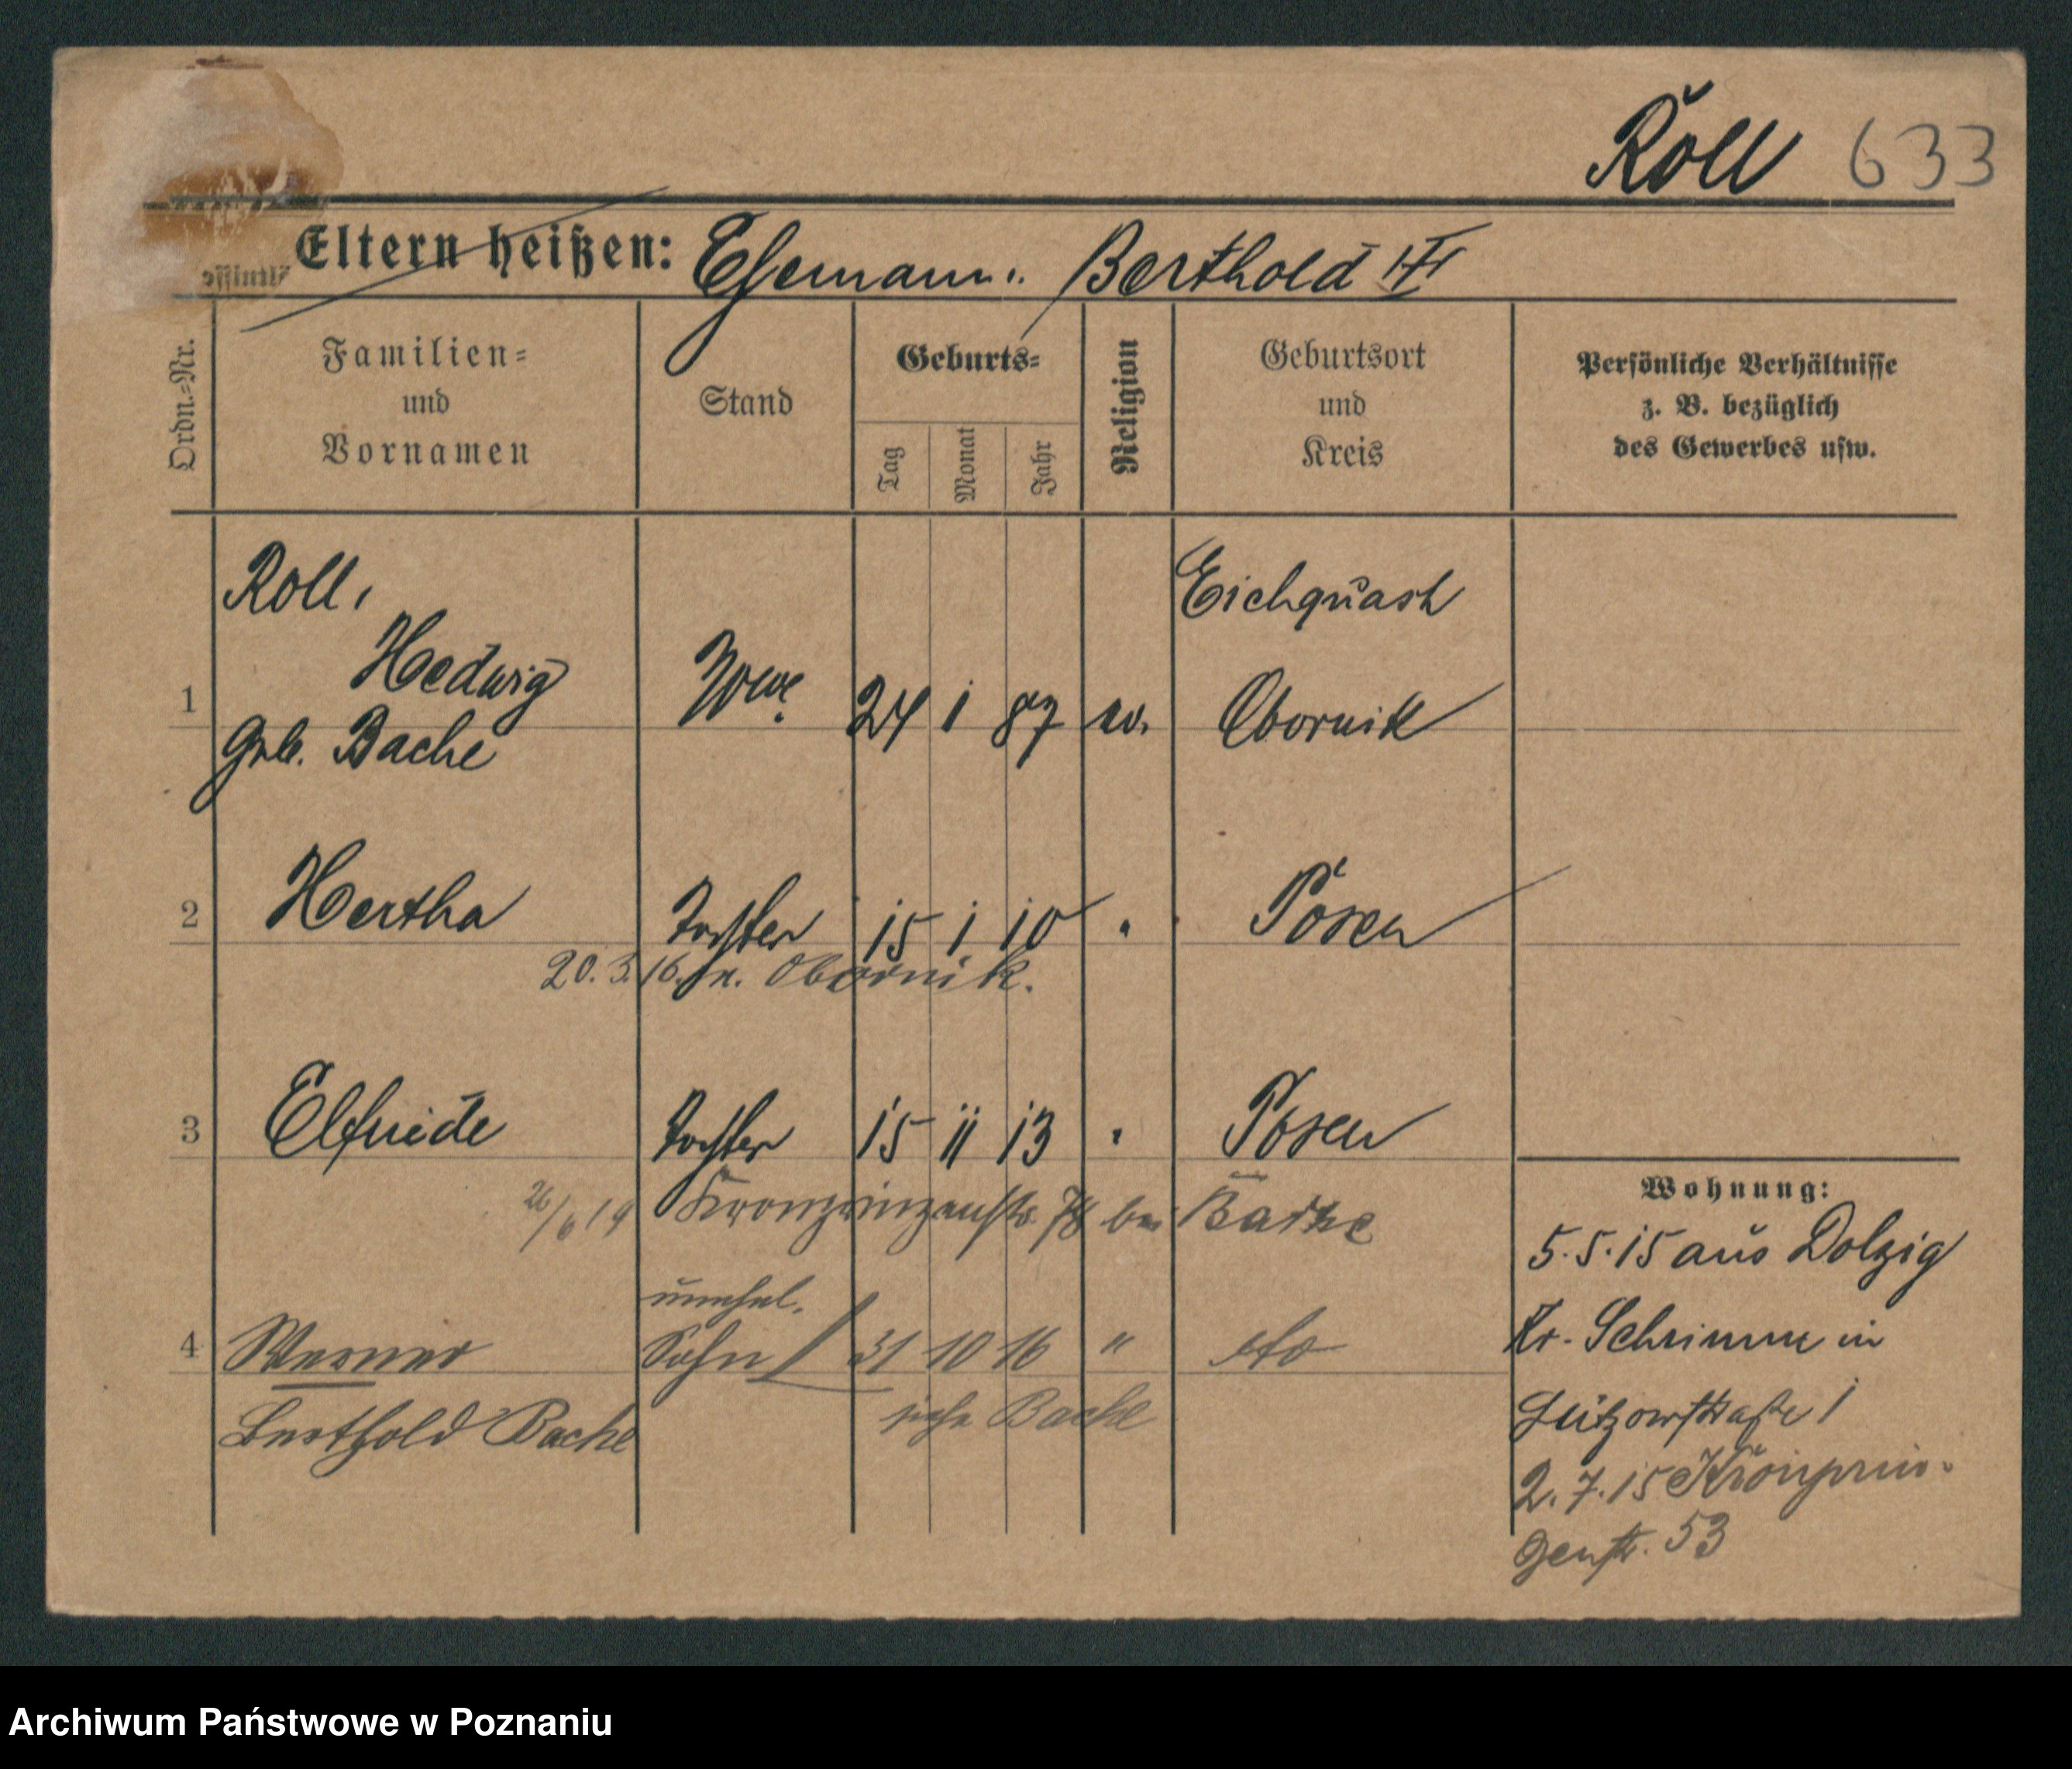 Roll 633
Eltern heißen: Ehemann: Berthold
Ordn.-Nr.
Familien-
und
Vornamen
Stand
Geburts-
Tag
Monat
Jahr
Religion
Geburtsort
und
Kreis
Persönliche Verhältnisse
z. B. bezüglich
des Gewerbes usw.
Roll,
Hedwig
1
geb. Bache
Wwe. 24 1 87 ev.
Eichquast
Obornik
2 Hertha Tochter 15 1 10 " Posen
20.3.16. n. Obornik.
3 Elfriede Tochter 15 11 13 " Posen
26/6 19 Kronprinzenstr. 78 bei Bache
unehel.
4 Werner Sohn 31 10 16 " dto
Berthold Bache siehe Bache
Wohnung:
5.5.15 aus Dolzig
Kr. Schrimm in
Lützowstraße 1
2.7.15 Kronprin-
zenstr. 53
Archiwum Państwowe w Poznaniu